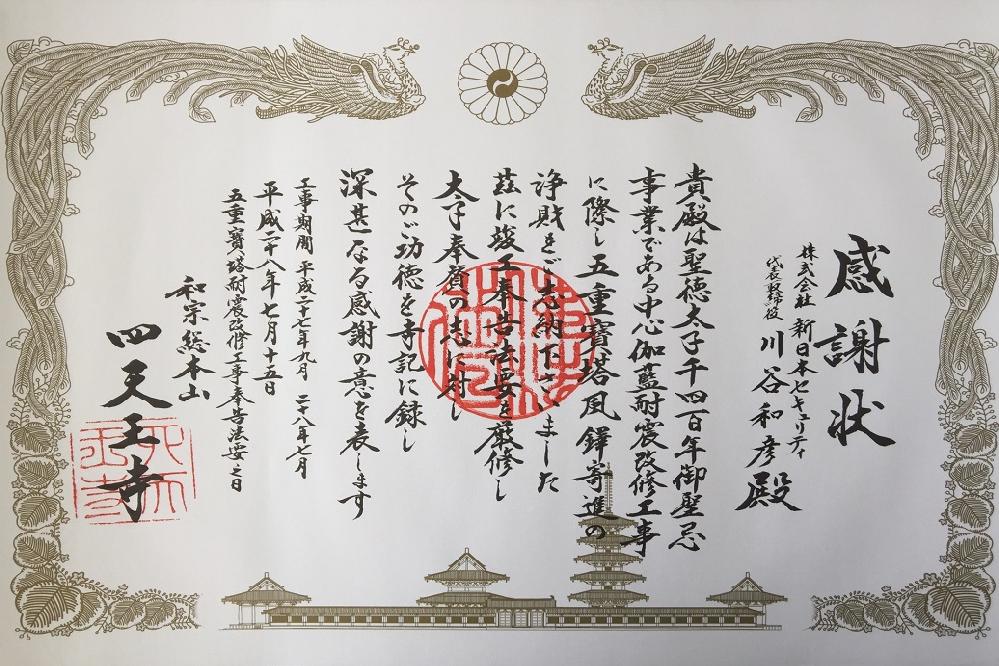 感謝状
株式会社 新日本セキュリティ
代表取締役 川谷和彦殿
貴殿は聖徳太子千四百年御聖忌
事業である中心伽藍耐震改修工事
に際し五重寶塔風鐸寄進の
浄財をご志納下さいました
茲に竣工奉告法要を厳修し
太子奉賛の志に対し
そのご功徳を寺記に録し
深甚なる感謝の意を表します
工事期間 平成二十七年九月 二十八年七月
平成二十八年七月十五日
五重寶塔耐震改修工事奉告法要之日
和宗総本山
四天王寺